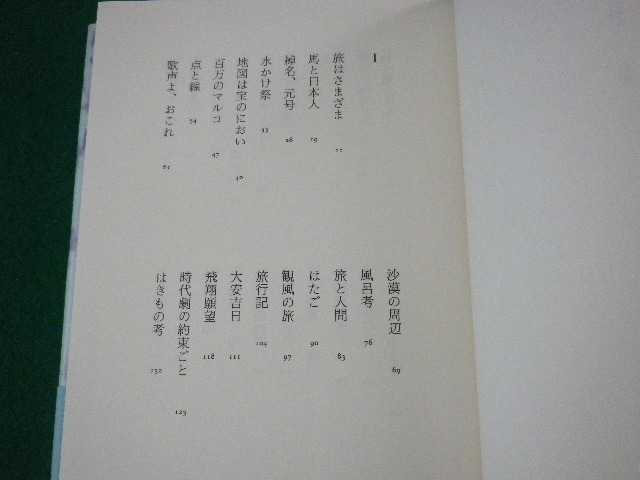 I
旅はさまざま 11
馬と日本人 19
綽名、元号 26
水かけ祭 33
地図は宝のにおい 40
百万のマルコ 47
点と線 54
歌声よ、おこれ 61
沙漠の周辺 69
風呂考 76
旅と人間 83
はたご 90
観風の旅 97
旅行記 104
大安吉日 111
飛翔願望 118
時代劇の約束ごと 125
はきもの考 132